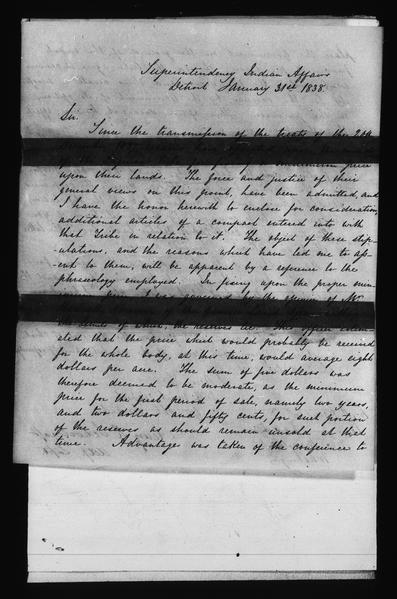 Superintendency Indian Affairs
Detroit January 31st 1838.
Sir.
Since the transmission of the treaty of the 20th
price
upon their lands. The force and justice of their
general views on this point, have been admitted, and
I have the honor herewith to enclose for consideration
additional articles of a compact entered into with
that tribe in relation to it. The object of these stip-
-ulations, and the reasons which have led me to as-
-sent to them, will be apparent by a reference to the
phraseology employed. In fixing upon the proper min-
the limits of which, the reserves lie. This officer estim-
-ated that the price which would probably be received
for the whole body, at this time, would average eight
dollars per acre. The sum of five dollars was
therefore deemed to be moderate, as the minimum
price for the first period of sale, namely two years,
and two dollars and fifty cents, for such portion
of the reserves as should remain unsold at that
time. Advantage was taken of the conference to